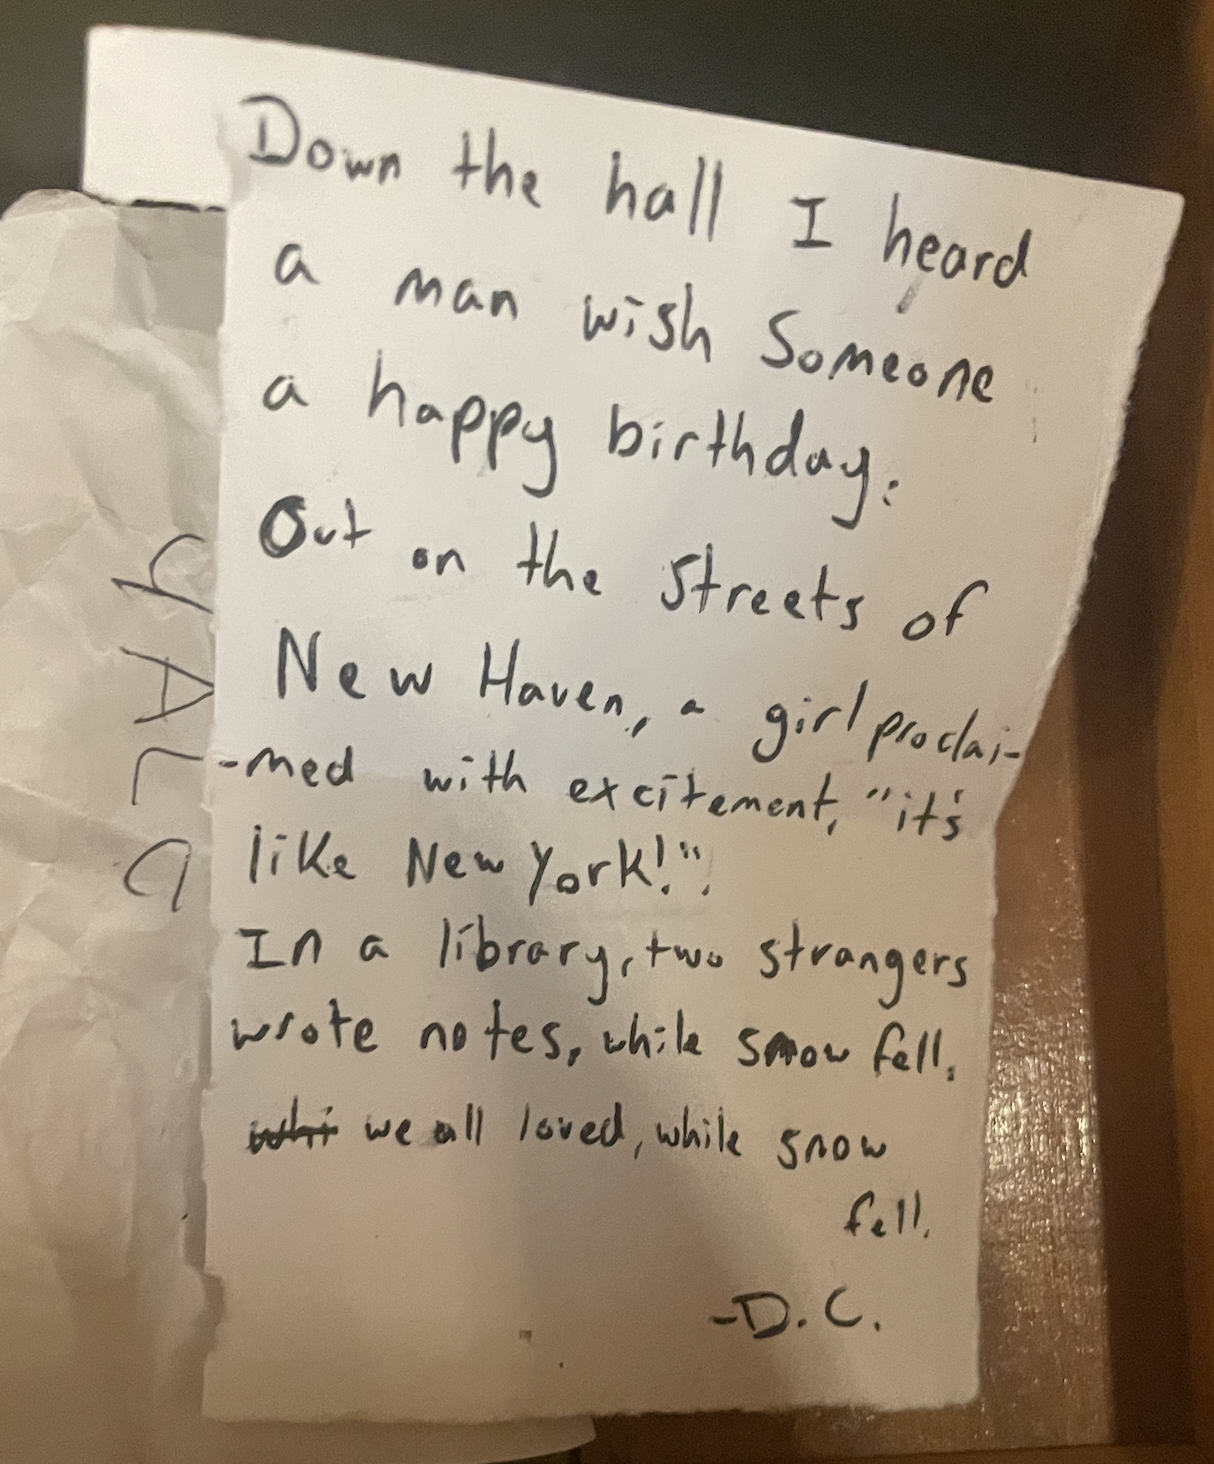 Down the hall I heard
a man wish someone
a happy birthday.
Out on the streets of
New Haven, a girl proclai-
-med with excitement, "it's
like New York!".
In a library, two strangers
wrote notes, while snow fell.
we all loved, while snow
fell.
-D.C.